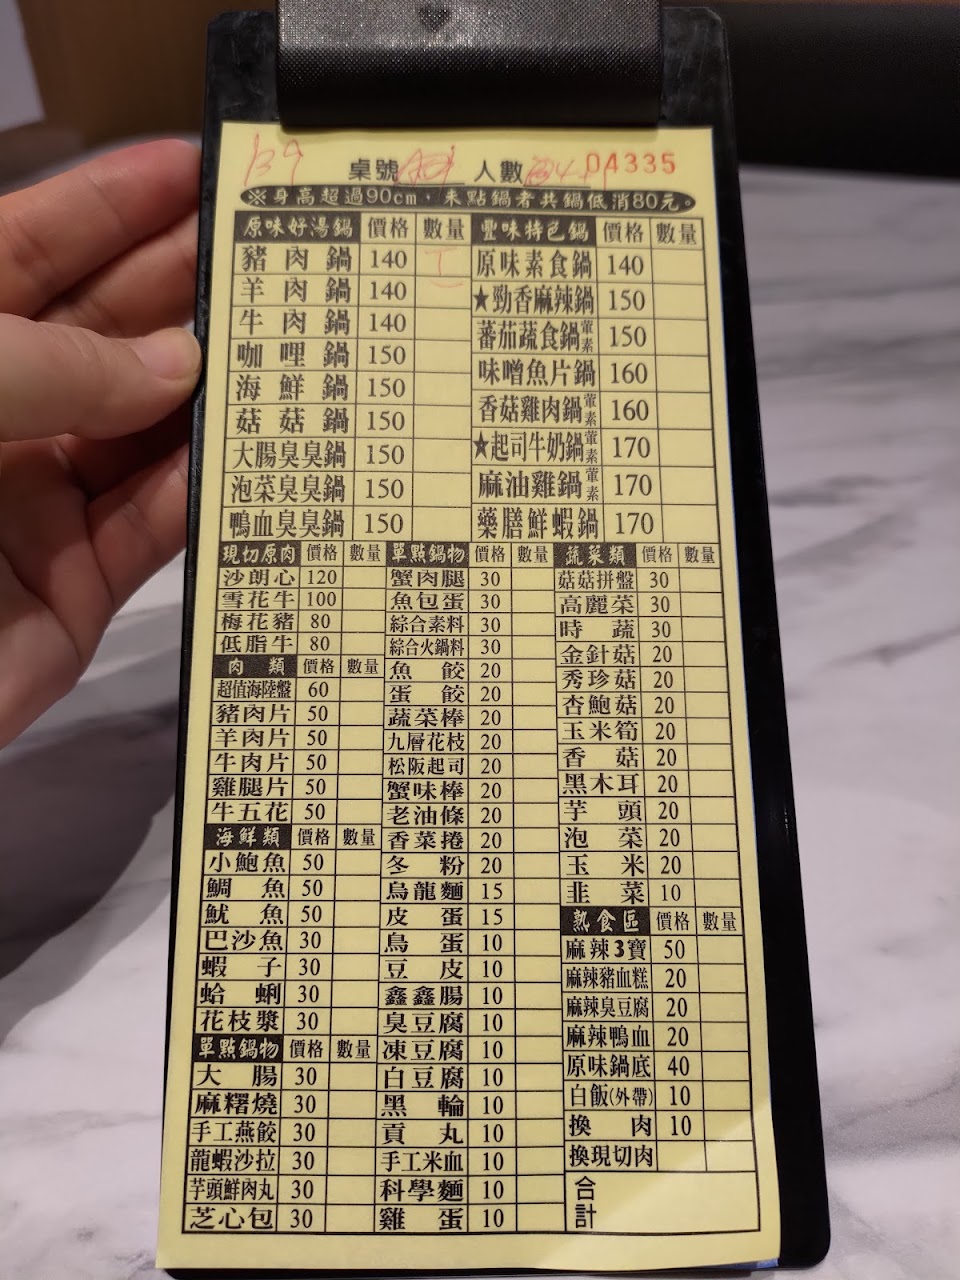 B9
桌號 人數 04335
※身高超過90cm,未點鍋者共鍋低消80元。
原味好湯鍋 價格 數量
豬肉鍋 140
羊肉鍋 140
牛肉鍋 140
咖哩鍋 150
海鮮鍋 150
菇菇鍋 150
大腸臭臭鍋 150
泡菜臭臭鍋 150
鴨血臭臭鍋 150
豐味特色鍋 價格 數量
原味素食鍋 140
★勁香麻辣鍋 150
蕃茄蔬食鍋 葷素 150
味噌魚片鍋 160
香菇雞肉鍋 葷素 160
★起司牛奶鍋 葷素 170
麻油雞鍋 葷素 170
藥膳鮮蝦鍋 170
現切原肉 價格 數量
沙朗心 120
雪花牛 100
梅花豬 80
低脂牛 80
肉類 價格 數量
超值海陸盤 60
豬肉片 50
羊肉片 50
牛肉片 50
雞腿片 50
牛五花 50
海鮮類 價格 數量
小鮑魚 50
鯛魚 50
魷魚 50
巴沙魚 30
蝦子 30
蛤蜊 30
花枝漿 30
單點鍋物 價格 數量
大腸 30
麻糬燒 30
手工燕餃 30
龍蝦沙拉 30
芋頭鮮肉丸 30
芝心包 30
單點鍋物 價格 數量
蟹肉腿 30
魚包蛋 30
綜合素料 30
綜合火鍋料 30
魚餃 20
蛋餃 20
蔬菜棒 20
九層花枝 20
松阪起司 20
蟹味棒 20
老油條 20
香菜捲 20
冬粉 20
烏龍麵 15
皮蛋 15
鳥蛋 10
豆皮 10
鑫鑫腸 10
臭豆腐 10
凍豆腐 10
白豆腐 10
黑輪 10
貢丸 10
手工米血 10
科學麵 10
雞蛋 10
蔬菜類 價格 數量
菇菇拼盤 30
高麗菜 30
時蔬 30
金針菇 20
秀珍菇 20
杏鮑菇 20
玉米筍 20
香菇 20
黑木耳 20
芋頭 20
泡菜 20
玉米 20
韭菜 10
熟食區 價格 數量
麻辣3寶 50
麻辣豬血糕 20
麻辣臭豆腐 20
麻辣鴨血 20
原味鍋底 40
白飯(外帶) 10
換肉 10
換現切肉
合計